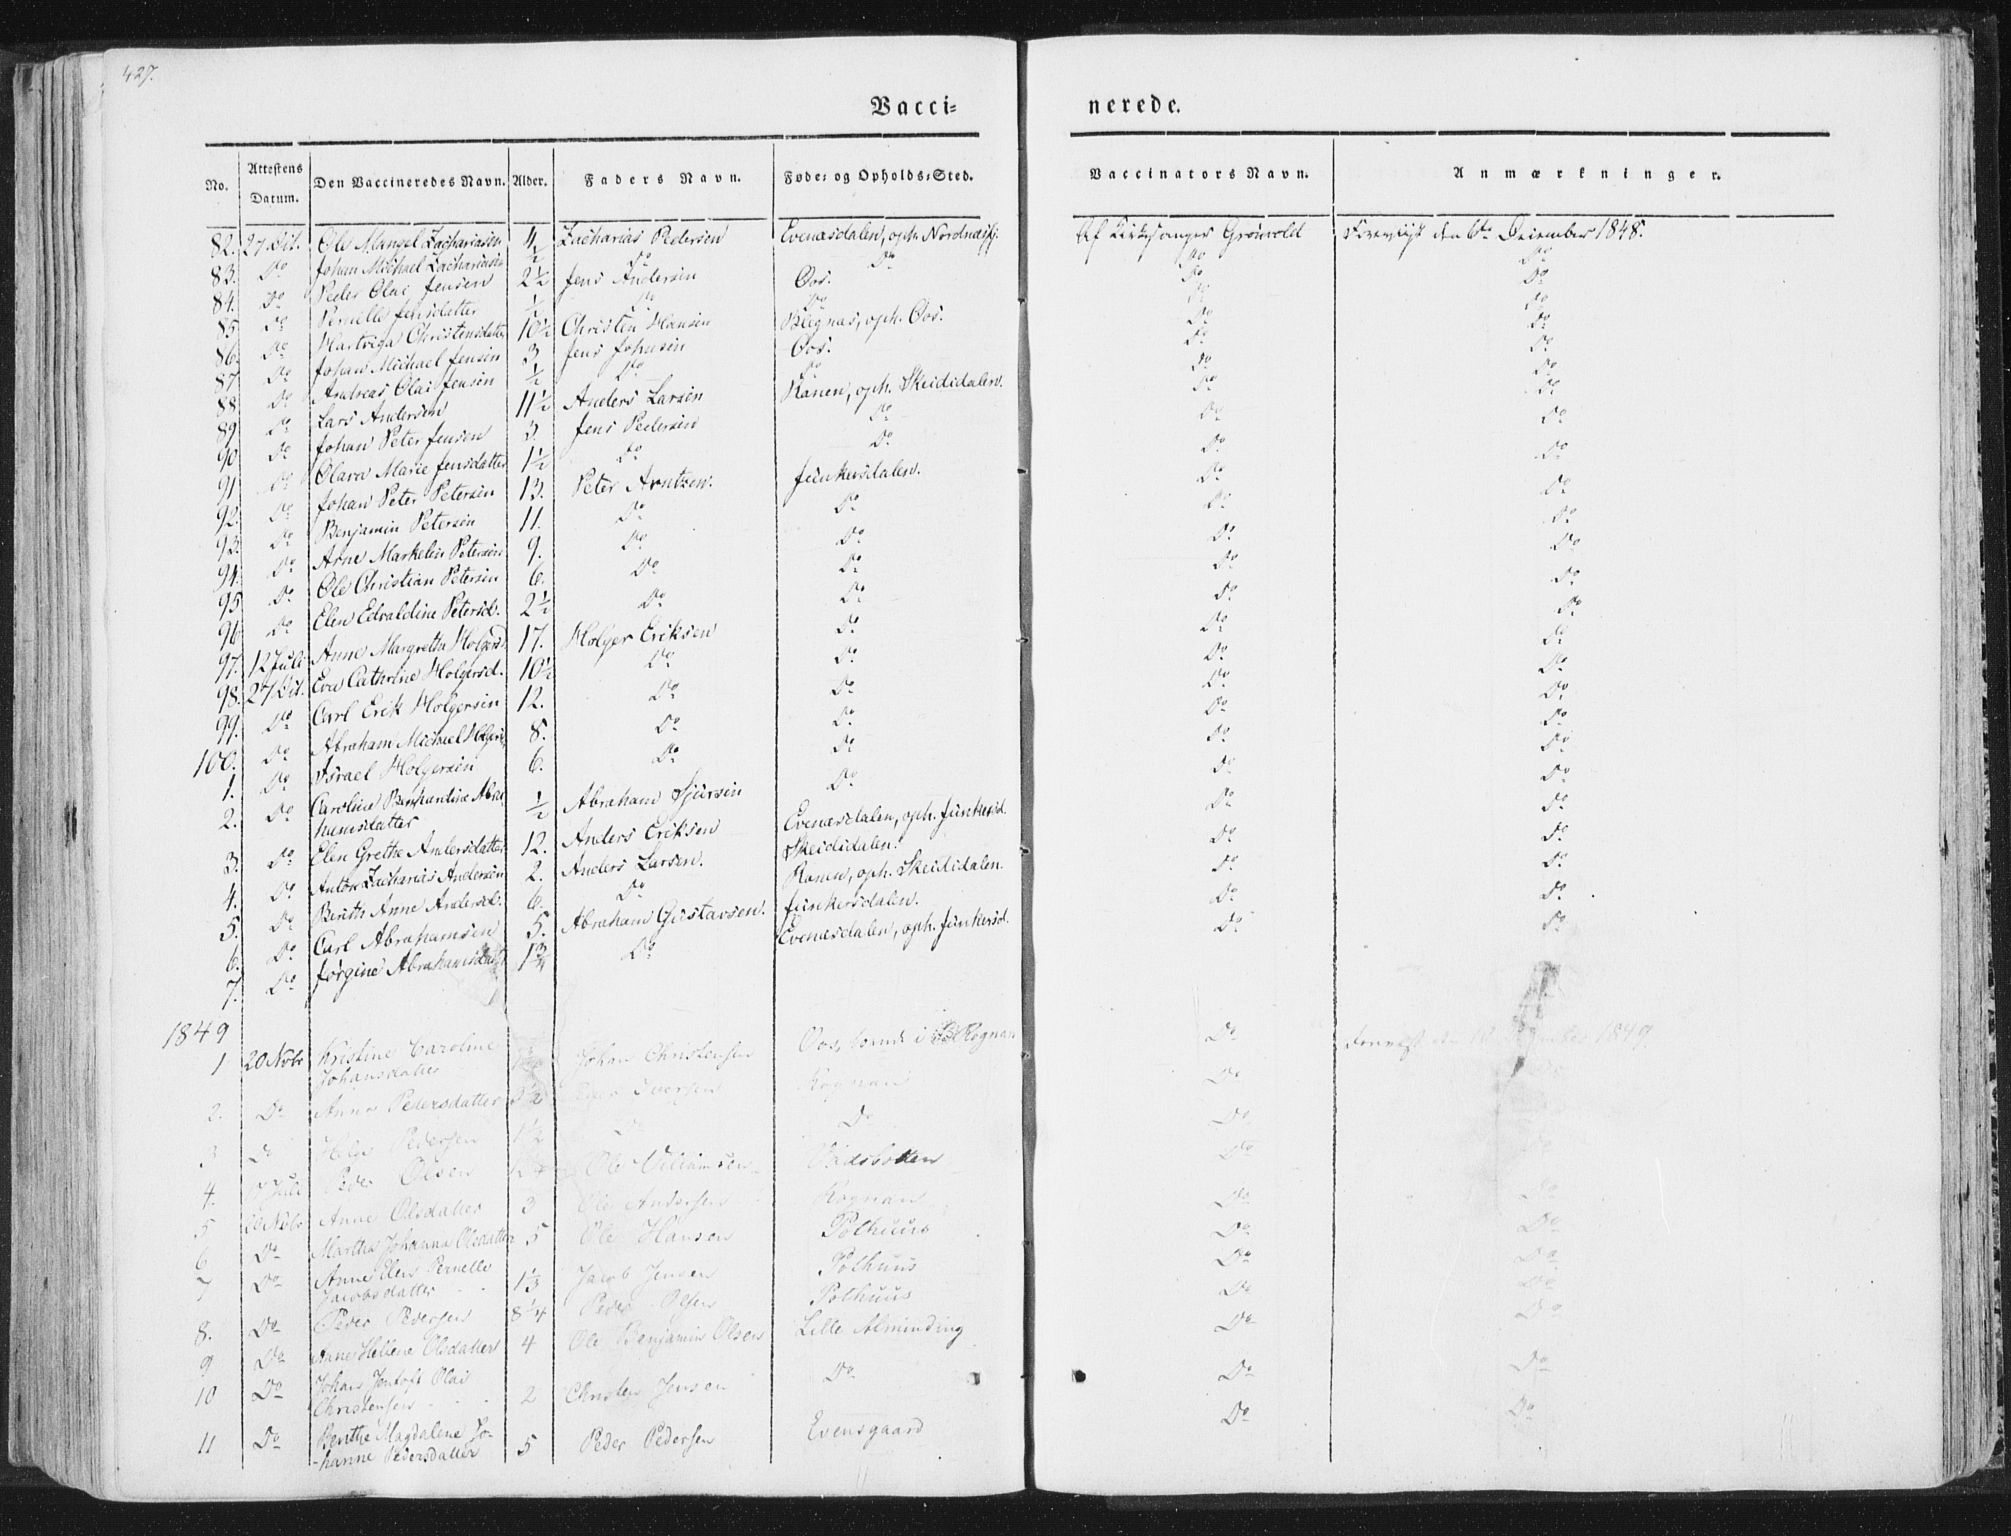 427.
Vacci= nerede.
No. Attestens Datum. Den Vaccineredes Navn. Alder. Faders Navn. Føde= og Opholds=Sted. Vaccinators Navn. Anmærkninger.
82. 27 Oct. Ole Mangel Zachariasen 4 Zacharias Pedersen Evenæsdalen, oph. Nordnæsfj. Af Kirkesanger Grønvold Forevist den 6te December 1848.
83. Do Johan Michael Zachariasen ½ Do Do Do Do
84. Do Peder Olai Jensen 2½ Jens Andersen Oos. Do Do
85. Do Pernelle Jensdatter ½ Do Do Do Do
86. Do Hartviga Christensdatter 10½ Christen Hansen Klegnæs, oph. Oos. Do Do
87 Do Johan Michael Jensen 3 Jens Johnsen Oos. Do Do
88 Do Andreas Olai Jensen ½ Do Do Do Do
89 Do Lars Andersen 11½ Anders Larsen Ranen, oph. Skeididalen. Do Do
90 Do Johan Peter Jensen 3. Jens Pedersen Do Do Do
91 Do Olava Marie Jensdatter 1½ Do Do Do Do
92. Do Johan Peter Petersen 13. Peter Arntzen. Junkersdalen. Do Do
93. Do Benjamin Petersen 11. Do Do Do Do
94. Do Arne Markelin Petersen 9. Do Do Do Do
95 Do Ole Christian Petersen 6. Do Do Do Do
96 Do Elen Edvaldine Petersd. 2½ Do Do Do Do
97. 12 Juli Anne Margretha Holgersd. 17. Holger Eriksen Do Do Do
98. 27 Oct. Eva Cathrine Holgersd. 10½ Do Do Do Do
99. Do Carl Erik Holgersen 12. Do Do Do Do
100. Do Abraham Michael Holgers. 8. Do Do Do Do
1. Do Israel Holgersen 6. Do Do Do Do
2. Do Caroline Benjamine Abra-
hamsdatter ½ Abraham Sjursen Do Do Do
3. Do Elen Grethe Andersdatter 12. Anders Eriksen Evenæsdalen, oph. Junkersd. Do Do
4. Do Anton Zacharias Andersen 2. Anders Larsen. Skeididalen. Do Do
5. Do Berith Anne Andersd. 6. Do Ranen, oph. Skeididalen. Do Do
6. Do Carl Abrahamsen 5. Abraham Gustavsen. Junkersdalen. Do Do
7. Do Jørgine Abrahamsdatt. 1¾ Do Evenæsdalen, oph. Junkersd. Do Do
1849
1 20 Novbr Kristine Caroline
Johansdatter Johan Christensen Rognan Do Forevist den December 1849
2. Do Anne Pedersdatter Peder Iversen Rognan Do
3 Do Pedersen 1½ Do Do Do
4. Juli Peder Olsen Ole Villumsen Vadsbotten Do
5 20 Novbr Anne Olsdatter 3 Ole Andersen Rognan Do Do
6 Do Martha Johanna Olsdatter 5 Ole Hansen Polhuus Do Do
7 Do Anne Elen Pernelle
Jacobsdatter 1⅓ Jacob Jensen Polhuus Do Do
8. Do Peder Pedersen 8¼ Peder Olsen Polhuus Do Do
9 Do Anne Helene Olsdatter 4 Ole Benjamin Olsen Lille Alminding Do Do
10 Do Johan Jentoft Olai
Christensen 2 Christen Jensen Do Do Do
11 Do Berithe Magdalene Jo-
hanne Pedersdatter 5 Peder Pedersen Evensgaard Do Do